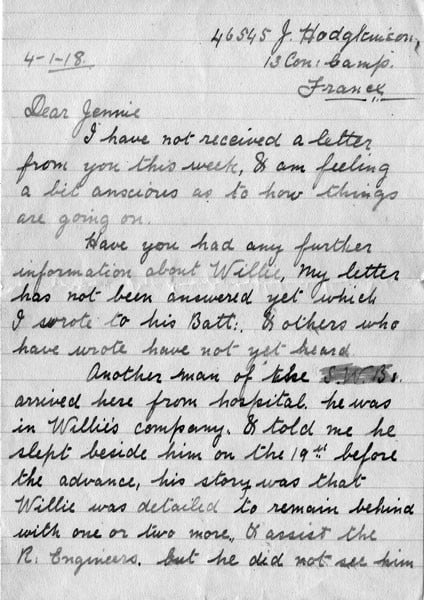 46545 J. Hodgkinson,
4-1-18.
13 Con: Camp.
France
Dear Jennie
I have not received a letter
from you this week, & am feeling
a bit anscious as to how things
are going on.
Have you had any further
information about Willie, My letter
has not been answered yet which
I wrote to his Batt:. & others who
have wrote have not yet heard
Another man of the S.W.Bs.
arrived here from hospital. he was
in Willie's company. & told me he
slept beside him on the 19th before
the advance, his story was that
Willie was detailed to remain behind
with one or two more,, & assist the
R. Engineers. but he did not see him